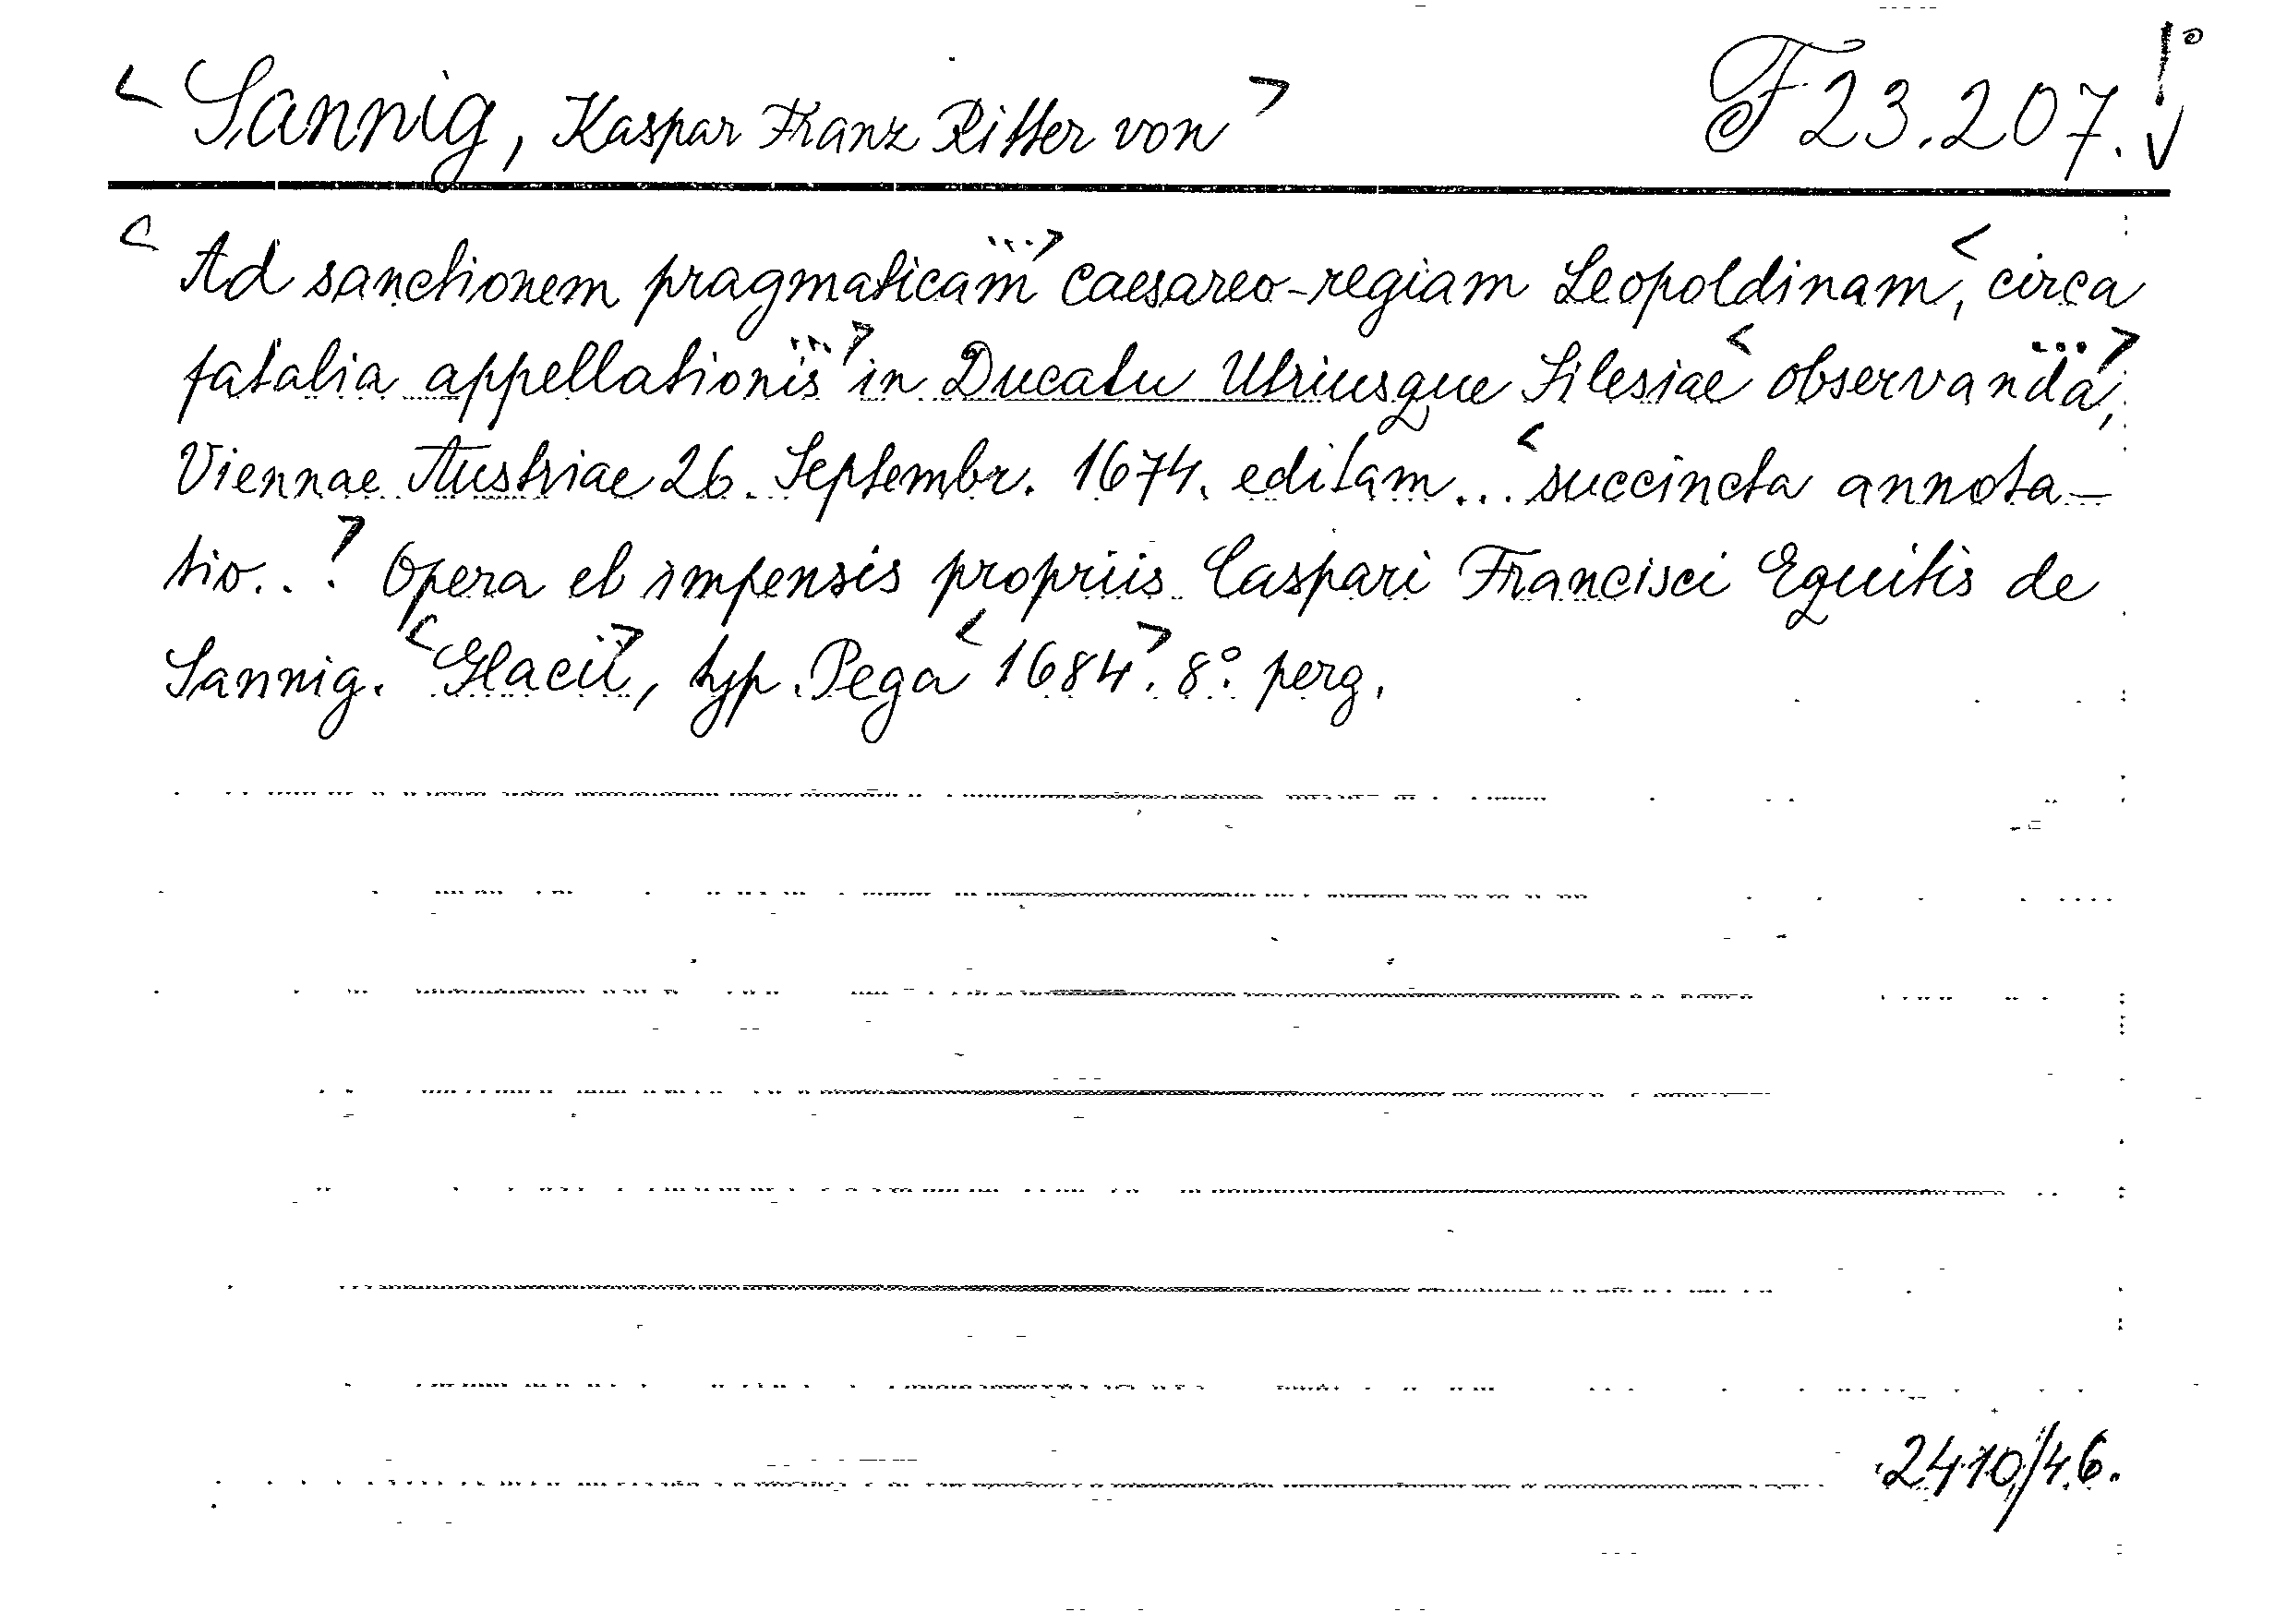 <Sannig, Kaspar Franz Ritter von> F 23.207.
<Ad sanctionem pragmaticam...> caesareo-regiam Leopoldinam, <circa
fatalia appellationis...> in Ducatu Utriusque Silesiae <observanda...>,
Viennae Austriae 26. Septembr. 1674. editam... <succincta annota-
tio...> Opera et impensis propriis Caspari Francisci Equitis de
Sannig. <Glacii>, typ. Pega <1684>. 8° perg.
2410/46.